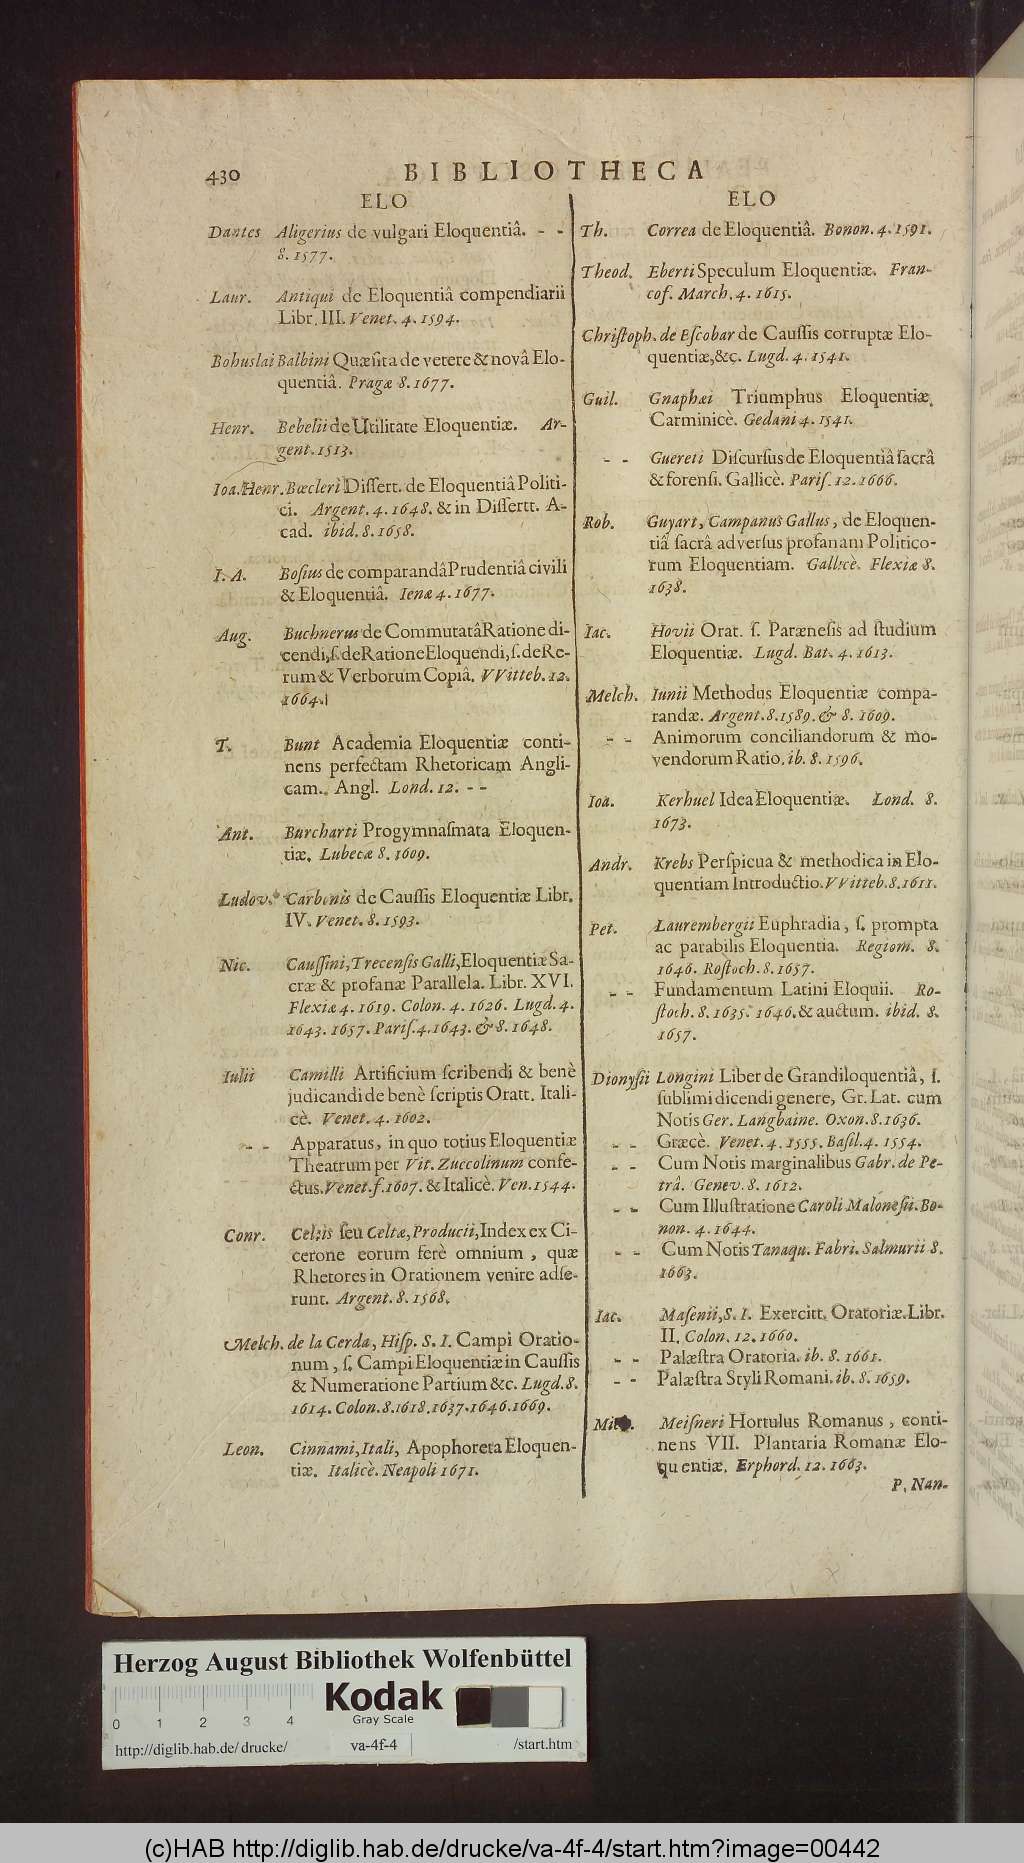 430 BIBLIOTHECA
ELO
Dantes Aligerius de vulgari Eloquentiâ. - -
8. 1577.
Laur. Antiqui de Eloquentiâ compendiarii
Libr. III. Venet. 4. 1594.
Bohuslai Balbini Quæſita de vetere & novâ Elo-
quentiâ. Pragæ 8. 1677.
Henr. Bebelii de Utilitate Eloquentiæ. Ar-
gent. 1513.
Ioa. Henr. Bœcleri Diſſert. de Eloquentiâ Politi-
ci. Argent. 4. 1648. & in Diſſertt. A-
cad. ibid. 8. 1658.
I. A. Boſius de comparandâ Prudentiâ civili
& Eloquentiâ. Ienæ 4. 1677.
Aug. Buchnerus de Commutatâ Ratione di-
cendi, ſ. de Ratione Eloquendi, ſ. de Re-
rum & Verborum Copiâ. VVitteb. 12.
1664.
T. Bunt Academia Eloquentiæ conti-
nens perfectam Rhetoricam Angli-
cam. Angl. Lond. 12. - -
Ant. Burcharti Progymnaſmata Eloquen-
tiæ. Lubecæ 8. 1609.
Ludov. Carbonis de Cauſſis Eloquentiæ Libr.
IV. Venet. 8. 1593.
Nic. Cauſſini, Trecenſis Galli, Eloquentiæ Sa-
cræ & profanæ Parallela. Libr. XVI.
Flexiæ 4. 1619. Colon. 4. 1626. Lugd. 4.
1643. 1657. Pariſ. 4. 1643. & 8. 1648.
Iulii Camilli Artificium ſcribendi & benè
judicandi de benè ſcriptis Oratt. Itali-
cè. Venet. 4. 1602.
- - Apparatus, in quo totius Eloquentiæ
Theatrum per Vit. Zuccolinum confe-
ctus. Venet. f. 1607. & Italicè. Ven. 1544.
Conr. Celtis ſeu Celtæ, Producii, Index ex Ci-
cerone eorum ferè omnium, quæ
Rhetores in Orationem venire adſe-
runt. Argent. 8. 1568.
Melch. de la Cerda, Hiſp. S. I. Campi Oratio-
num, ſ. Campi Eloquentiæ in Cauſſis
& Numeratione Partium &c. Lugd. 8.
1614. Colon. 8. 1618. 1637. 1646. 1669.
Leon. Cinnami, Itali, Apophoreta Eloquen-
tiæ. Italicè. Neapoli 1671.
ELO
Th. Correa de Eloquentiâ. Bonon. 4. 1591.
Theod. Eberti Speculum Eloquentiæ. Fran-
cof. March. 4. 1615.
Chriſtoph. de Eſcobar de Cauſſis corruptæ Elo-
quentiæ, &c. Lugd. 4. 1541.
Guil. Gnaphæi Triumphus Eloquentiæ
Carminicè. Gedani 4. 1541.
- - Guereti Diſcurſus de Eloquentiâ ſacrâ
& forenſi. Gallicè. Pariſ. 12. 1666.
Rob. Guyart, Campanus Gallus, de Eloquen-
tiâ ſacrâ adverſus profanam Politico-
rum Eloquentiam. Gallicè. Flexiæ 8.
1638.
Iac. Hovii Orat. ſ. Parænesis ad ſtudium
Eloquentiæ. Lugd. Bat. 4. 1613.
Melch. Iunii Methodus Eloquentiæ compa-
randæ. Argent. 8. 1589. & 8. 1609.
- - Animorum conciliandorum & mo-
vendorum Ratio. ib. 8. 1596.
Ioa. Kerhuel Idea Eloquentiæ. Lond. 8.
1673.
Andr. Krebs Perſpicua & methodica in Elo-
quentiam Introductio. VVitteb. 8. 1611.
Pet. Laurembergii Euphradia, ſ. prompta
ac parabilis Eloquentia. Regiom. 8.
1646. Roſtoch. 8. 1657.
- - Fundamentum Latini Eloquii. Ro-
ſtoch. 8. 1635. 1646. & auctum. ibid. 8.
1657.
Dionyſii Longini Liber de Grandiloquentiâ, ſ.
ſublimi dicendi genere, Gr. Lat. cum
Notis Ger. Langbaine. Oxon. 8. 1636.
- - Græcè. Venet. 4. 1555. Baſil. 4. 1554.
- - Cum Notis marginalibus Gabr. de Pe-
trâ. Genev. 8. 1612.
- - Cum Illuſtratione Caroli Maloneſii. Bo-
non. 4. 1644.
- - Cum Notis Tanaqu. Fabri. Salmurii 8.
1663.
Iac. Maſenii, S. I. Exercitt. Oratoriæ. Libr.
II. Colon. 12. 1660.
- - Palæſtra Oratoria. ib. 8. 1661.
- - Palæſtra Styli Romani. ib. 8. 1659.
Meiſneri Hortulus Romanus, conti-
nens VII. Plantaria Romanæ Elo-
quentiæ. Erphord. 12. 1663.
P. Nan-
Herzog August Bibliothek Wolfenbüttel
Kodak
Gray Scale
0 1 2 3 4
http://diglib.hab.de/drucke/ va-4f-4 /start.htm
(c)HAB http://diglib.hab.de/drucke/va-4f-4/start.htm?image=00442